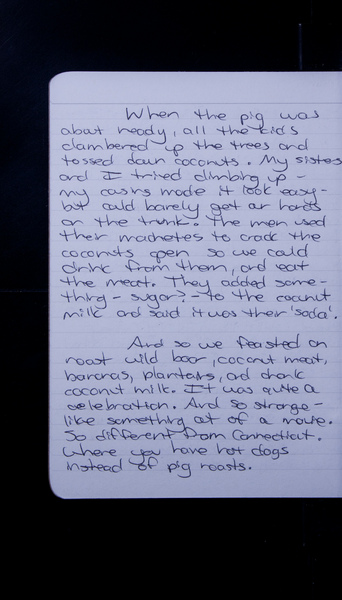 When the pig was
about ready, all the kids
clambered up the trees and
tossed down coconuts. My sister
and I tried climbing up -
my cousins made it look easy -
but could barely get our hands
on the trunk. The men used
their machetes to crack the
coconuts open so we could
drink from them, and eat
the meat. They added some-
thing - sugar? - to the coconut
milk and said it was their 'soda'.
And so we feasted on
roast wild boar, coconut meat,
bananas, plantains, and drank
coconut milk. It was quite a
celebration. And so strange -
like something out of a movie.
So different from Connecticut.
Where you have hot dogs
instead of pig roasts.